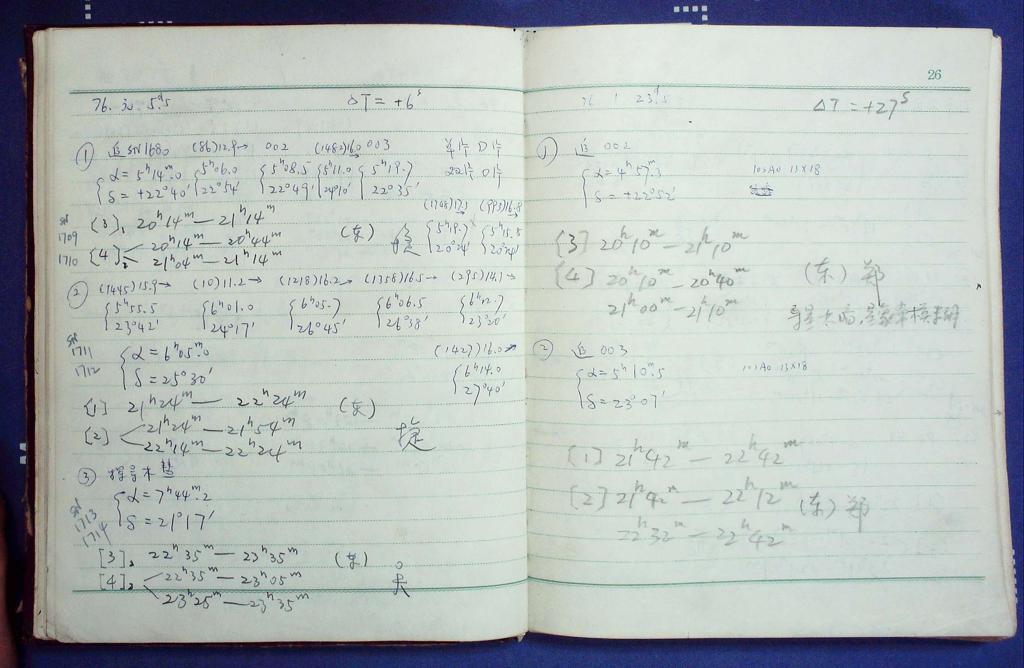 76. 5ᵈ.5
ΔT = +6ˢ
① 追 SN1680 (86)12.9→ 002 (1482)16.0 003
α = 5ʰ14ᵐ.0 5ʰ06.0 5ʰ08.5 5ʰ11.0 5ʰ19.7
δ = +22°40′ 22°54′ 22°49′ 24°10′ 22°35′
(1708)17.3 (993)16.8
5ʰ19.7 5ʰ15.5
20°24′ 20°24′
SN 1709 [3], 20ʰ14ᵐ — 21ʰ14ᵐ (东)
1710 [4]₂ 20ʰ14ᵐ — 20ʰ44ᵐ
21ʰ04ᵐ — 21ʰ14ᵐ
② (1445)15.9→ (10)11.2→ (1218)16.2→ (1358)16.5→ (295)14.1→
5ʰ55.5 6ʰ01.0 6ʰ05.7 6ʰ06.5 6ʰ12.7
23°42′ 24°17′ 26°45′ 26°38′ 23°20′
SN 1711 α = 6ʰ05ᵐ.0 (1427)16.0→
1712 δ = 25°30′ 6ʰ14.0
27°40′
[1] 21ʰ24ᵐ — 22ʰ24ᵐ (东)
[2] 21ʰ24ᵐ — 21ʰ54ᵐ 捷
22ʰ14ᵐ — 22ʰ24ᵐ
③ 探寻木彗
SN 1713 α = 7ʰ44ᵐ.2
1714 δ = 21°17′
[3]₂ 22ʰ35ᵐ — 23ʰ35ᵐ (东)
[4]₂ 22ʰ35ᵐ — 23ʰ05ᵐ
23ʰ25ᵐ — 23ʰ35ᵐ
26
76 1 23ᵈ.5
ΔT = +27ˢ
① 追 002
α = 4ʰ57ᵐ.3 103AO 13×18
δ = +22°52′
[3] 20ʰ10ᵐ — 21ʰ10ᵐ
[4] 20ʰ10ᵐ — 20ʰ40ᵐ (东) 郑
21ʰ00ᵐ — 21ʰ10ᵐ 导星太暗,星象幸模糊
② 追 003
α = 5ʰ10ᵐ.5 103AO 13×18
δ = 23°07′
[1] 21ʰ42ᵐ — 22ʰ42ᵐ
[2] 21ʰ42ᵐ — 22ʰ12ᵐ (东) 郑
22ʰ32ᵐ — 22ʰ42ᵐ